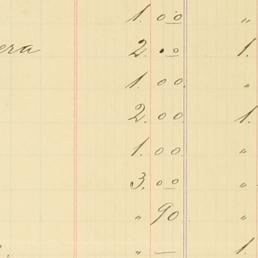 1. 00 "
era 2. 00 1.
1. 00. "
2. 00 1.
1. 00. "
3. 00 "
" 90 "
" — 1.